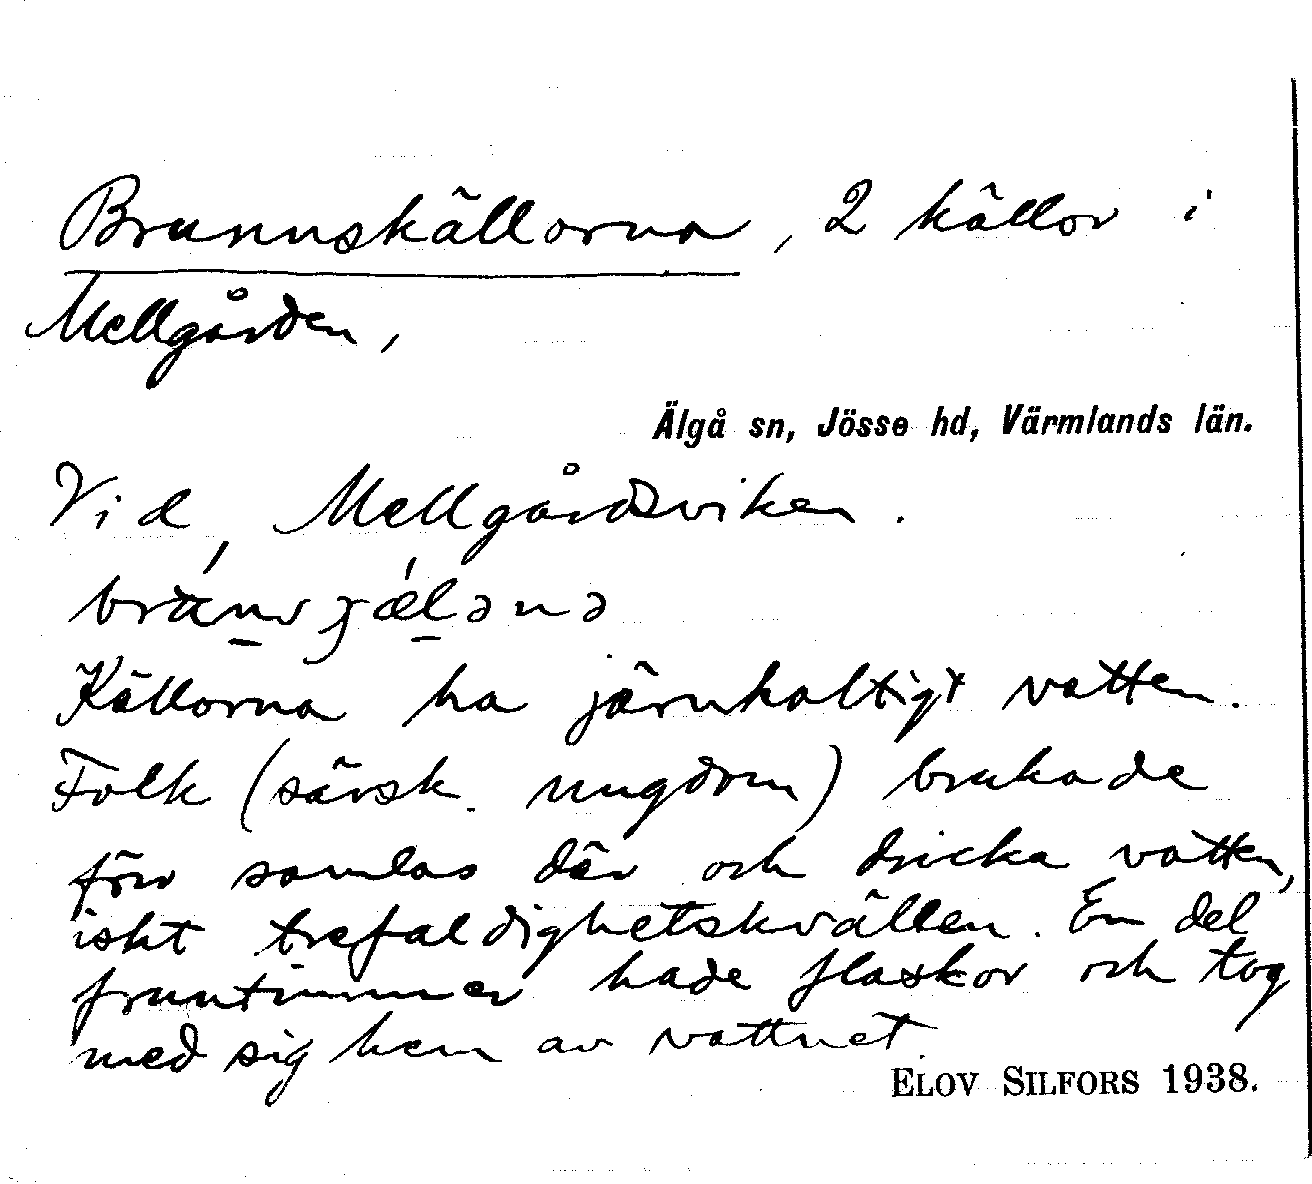 Brunnskällorna, 2 källor i
Mellgården,
Älgå sn, Jösse hd, Värmlands län.
Vid Mellgårdsviken.
Källorna ha järnhaltigt vatten.
Folk (särsk. ungdom) brukade
förr samlas där och dricka vatten,
iskt trefaldighetskvällen. En del
fruntimmer hade flaskor och tog
med sig hem av vattnet.
ELOV SILFORS 1938.